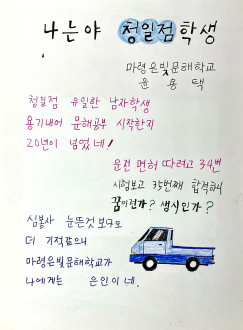 나는야 청일점 학생
마령은빛문해학교
윤용택
청일점 유일한 남자학생
용기내어 문해공부 시작한지
20년이 넘었네!
운전 면허 따려고 34번
시험보고 35번째 합격하니
꿈이런가? 생시인가?
심봉사 눈뜬것 보다도
더 기적같으니
마령은빛문해학교가
나에게는 은인이네.